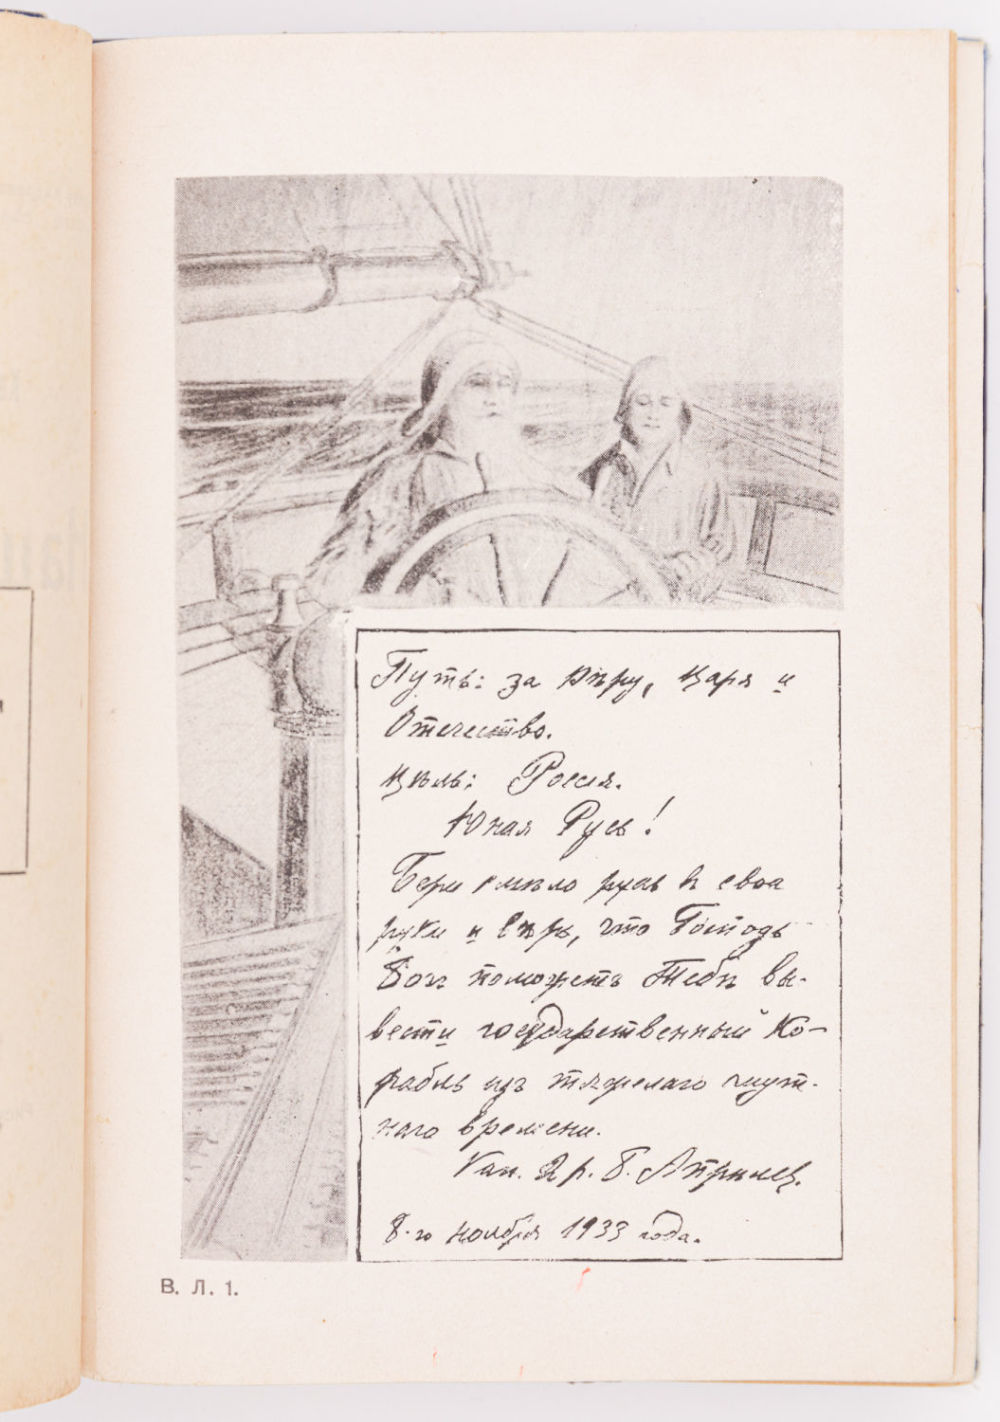 Путь: за Вѣру, Царя и
Отечество.
Цѣль: Россія.
Юная Русь!
Бери смѣло руль в свои
руки и вѣрь, что Господь
Богъ поможетъ Тебѣ вы-
вести государственный Ко-
рабль изъ тяжелаго смут-
наго времени.
Кап. 2 р. Б. Апрѣлев.
8-го ноября 1933 года.
В. Л. 1.